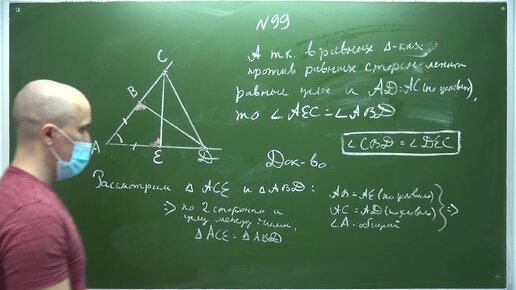 N99
А т.к. в равных Δ-ках
против равных сторон лежат
равные углы и AD=AC (по условию),
то ∠AEC=∠ABD
∠CBD=∠DEC
C
B
A
E
D
Док-во.
Рассмотрим Δ ACE и Δ ABD:
AB=AE (по условию)
AC=AD (по условию)
∠A-общий
⇒
⇒ по 2 сторонам и
углу между ними,
Δ ACE = Δ ABD